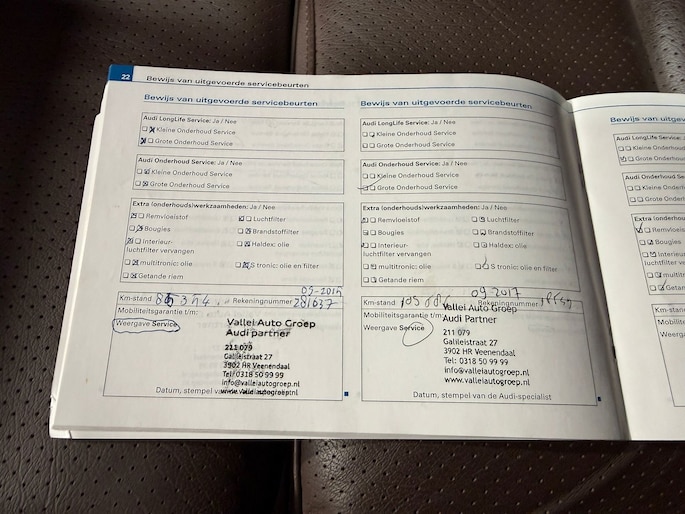 22 Bewijs van uitgevoerde servicebeurten
Bewijs van uitgevoerde servicebeurten
Audi LongLife Service: Ja / Nee
Kleine Onderhoud Service
Grote Onderhoud Service
Audi Onderhoud Service: Ja / Nee
Kleine Onderhoud Service
Grote Onderhoud Service
Extra (onderhouds)werkzaamheden: Ja / Nee
Remvloeistof Luchtfilter
Bougies Brandstoffilter
Interieur- Haldex: olie
luchtfilter vervangen
multitronic: olie S tronic: olie en filter
Getande riem
Km-stand Rekeningnummer 281637
Mobiliteitsgarantie t/m:
Weergave Service
Vallei Auto Groep
Audi partner
211 079
Galileistraat 27
3902 HR Veenendaal
Tel: 0318 50 99 99
info@valleiautogroep.nl
www.valleiautogroep.nl
Datum, stempel van
Bewijs van uitgevoerde servicebeurten
Audi LongLife Service: Ja / Nee
Kleine Onderhoud Service
Grote Onderhoud Service
Audi Onderhoud Service: Ja / Nee
Kleine Onderhoud Service
Grote Onderhoud Service
Extra (onderhouds)werkzaamheden: Ja / Nee
Remvloeistof Luchtfilter
Bougies Brandstoffilter
Interieur- Haldex: olie
luchtfilter vervangen
multitronic: olie S tronic: olie en filter
Getande riem
09-2017
Km-stand Rekeningnummer
Mobiliteitsgarantie t/m:
Weergave Service
Vallei Auto Groep
Audi Partner
211 079
Galileistraat 27
3902 HR Veenendaal
Tel: 0318 50 99 99
info@valleiautogroep.nl
www.valleiautogroep.nl
Datum, stempel van de Audi-specialist
Bewijs van uitgev
Audi LongLife Service: J
Kleine Onderhoud
Grote Onderhoud
Audi Onderhoud Se
Kleine Onderh
Grote Onderh
Extra (onderhoud
Remvloeis
Bougies
Interieur-
luchtfilter ver
multitr
Getan
Km-stand
Mobilitei
Weerga